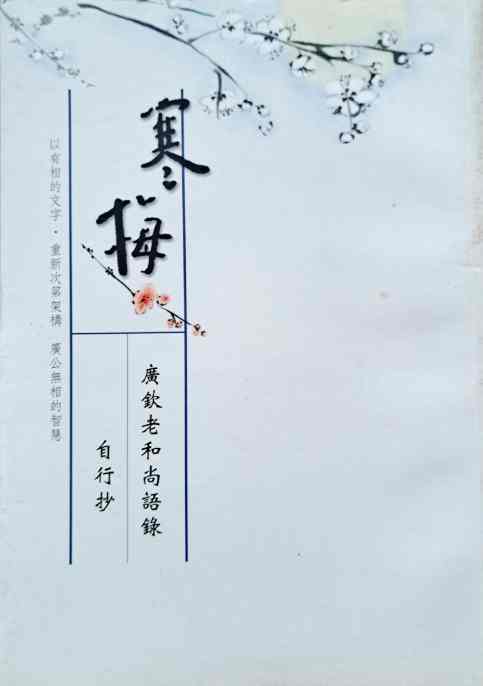 寒梅
廣欽老和尚語錄
自行抄
以有相的文字・重新次第架構 廣公無相的智慧